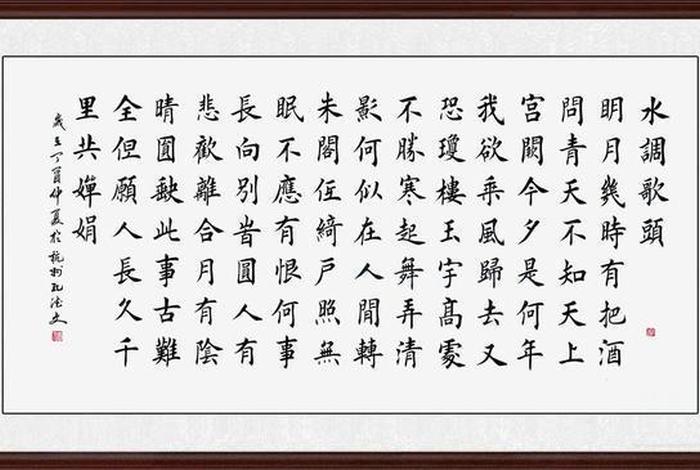 水調歌頭
明月幾時有把酒
問青天不知天上
宮闕今夕是何年
我欲乘風歸去又
恐瓊樓玉宇髙處
不勝寒起舞弄清
影何似在人間轉
朱閣低綺戶照無
眠不應有恨何事
長向別旹圓人有
悲歡離合月有陰
晴圓缺此事古難
全但願人長久千
里共嬋娟
歲在丁酉仲夏於杭州孔